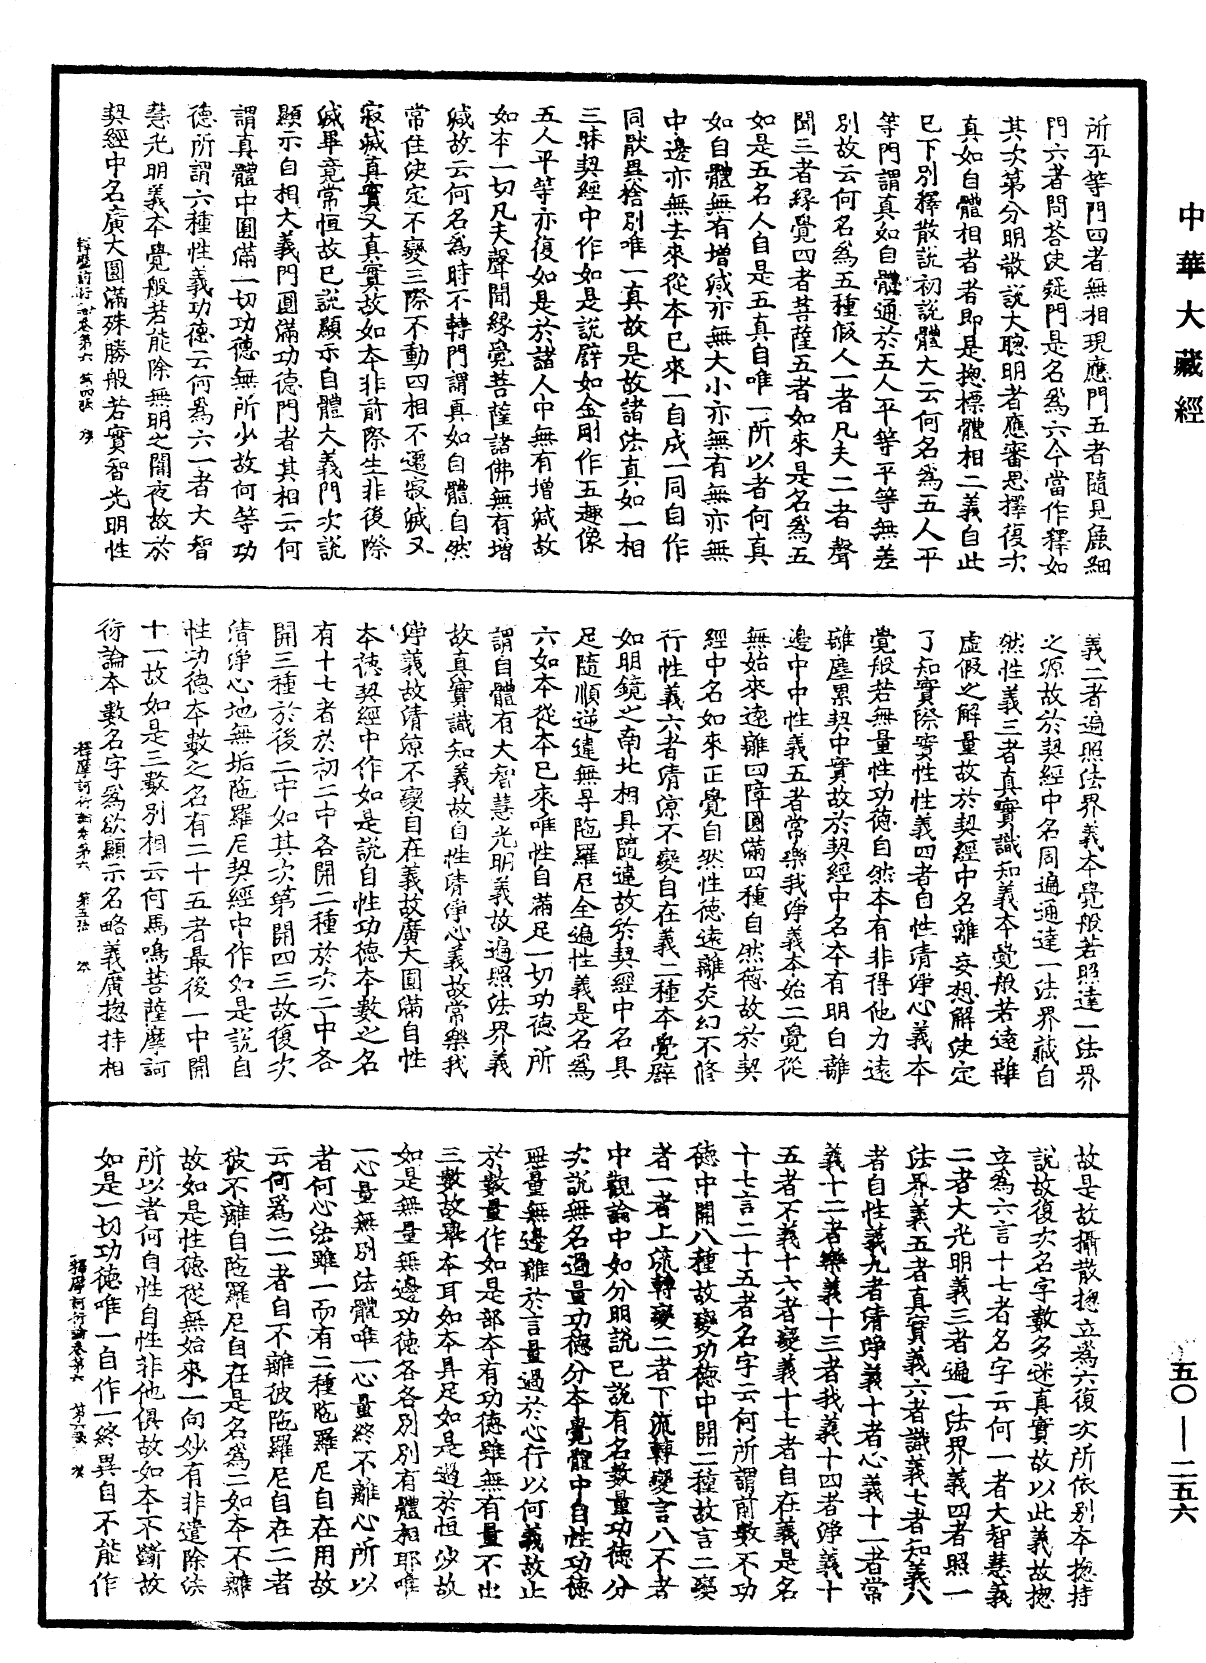 中華大藏經
所平等門四者無相現應門五者隨見麁細
門六者問荅使疑門是名爲六今當作釋如
其次第分明散說大聰明者應審思擇復次
真如自體相者者即是捴標體相二義自此
已下別釋散說初說體大云何名爲五人平
等門謂真如自體通於五人平等平等無差
別故云何名爲五種假人一者凡夫二者聲
聞三者緣覺四者菩薩五者如來是名爲五
如是五名人自是五真自唯一所以者何真
如自體無有增減亦無大小亦無有無亦無
中邊亦無去來從本已來一自成一同自作
同猒異捨別唯一真故是故諸法真如一相
三昧契經中作如是說辟如金剛作五趣像
五人平等亦復如是於諸人中無有增減故
如本一切凡夫聲聞緣覺菩薩諸佛無有增
減故云何名爲時不轉門謂真如自體自然
常住決定不變三際不動四相不遷寂滅又
寂滅真實又真實故如本非前際生非後際
滅畢竟常恒故已說顯示自體大義門次說
顯示自相大義門圓滿功德門者其相云何
謂真體中圓滿一切功德無所少故何等功
德所謂六種性義功德云何爲六一者大智
慧光明義本覺般若能除無明之闇夜故於
契經中名廣大圓滿殊勝般若實智光明性
釋摩訶衍論卷第六　第四張
義二者遍照法界義本覺般若照達一法界
之源故於契經中名周遍通達一法界藏自
然性義三者真實識知義本覺般若遠離
虛假之解量故於契經中名離妄想解使定
了知實際實性性義四者自性清淨心義本
覺般若無量性功德自然本有非得他力遠
離塵累契中實故於契經中名本有明白離
邊中中性義五者常樂我淨義本始二覺從
無始來遠離四障圓滿四種自然德故於契
經中名如來正覺自然性德遠離炎幻不修
行性義六者清涼不變自在義二種本覺辟
如明鏡之南北相具隨違故於契經中名具
足隨順逆違無㝵陁羅尼全遍性義是名爲
六如本從本已來唯性自滿足一切功德所
謂自體有大智慧光明義故遍照法界義
故真實識知義故自性清淨心義故常樂我
淨義故清涼不變自在義故廣大圓滿自性
本德契經中作如是說自性功德本數之名
有十七者於初二中各開二種於次二中各
開三種於後二中如其次第開四三故復次
清淨心地無垢陁羅尼契經中作如是說自
性功德本數之名有二十五者最後一中開
十一故如是三數別相云何馬鳴菩薩摩訶
衍論本數名字爲欲顯示名略義廣捴持相
釋摩訶衍論卷第六　第五張
故是故攝散捴立爲六復次所依別本捴持
說故復次名字數多迷真實故以此義故捴
立爲六言十七者名字云何一者大智慧義
二者大光明義三者遍一法界義四者照一
法界義五者真實義六者識義七者知義八
者自性義九者清淨義十者心義十一者常
義十二者樂義十三者我義十四者淨義十
五者不義十六者變義十七者自在義是名
十七言二十五者名字云何所謂前數不功
德中開八種故變功德中開二種故言二變
者一者上流轉變二者下流轉變言八不者
中觀論中如分明說已說有名數量功德分
次說無名過量功德分本覺體中自性功德
無量無邊離於言量過於心行以何義故止
於數量作如是部本有功德雖無有量不出
三數故舉本耳如本具足如是過於恒沙故
如是無量無邊功德各各別別有體相耶唯
一心量無別法體唯一心量終不離心所以
者何心法雖一而有二種陁羅尼自在用故
云何爲二一者自不離彼陁羅尼自在二者
彼不離自陁羅尼自在是名爲二如本不離
故如是性德從無始來一向妙有非遣除法
所以者何自性自性非他俱故如本不斷故
如是一切功德唯一自作一終異自不能作
釋摩訶衍論卷第六　第六張
五〇—二五六